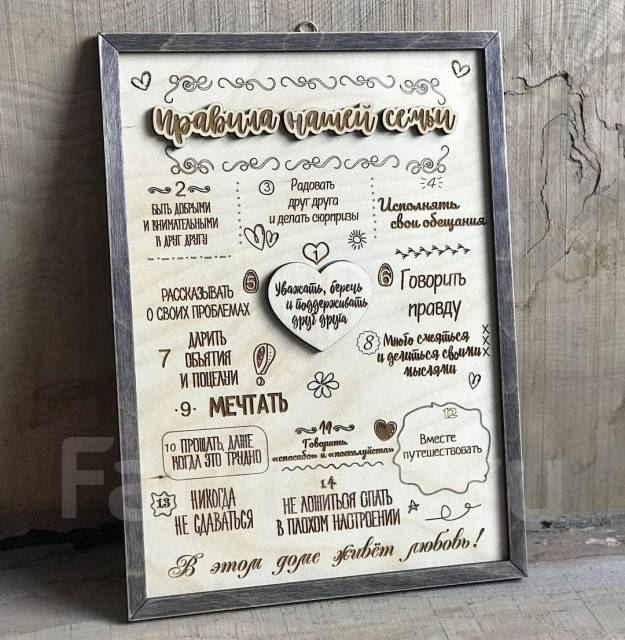 Правила нашей семьи
1
Уважать, беречь
и поддерживать
друг друга
2
БЫТЬ ДОБРЫМИ
И ВНИМАТЕЛЬНЫМИ
К ДРУГ ДРУГУ
3
Радовать
друг друга
и делать сюрпризы
4
Исполнять
свои обещания
5
РАССКАЗЫВАТЬ
О СВОИХ ПРОБЛЕМАХ
6
Говорить
правду
7
ДАРИТЬ
ОБЪЯТИЯ
И ПОЦЕЛУИ
8
Много смеяться
и делиться своими
мыслями
9
МЕЧТАТЬ
10 ПРОЩАТЬ, ДАЖЕ
КОГДА ЭТО ТРУДНО
11
Говорить
«спасибо» и «пожалуйста»
12
Вместе
путешествовать
13
НИКОГДА
НЕ СДАВАТЬСЯ
14
НЕ ЛОЖИТЬСЯ СПАТЬ
В ПЛОХОМ НАСТРОЕНИИ
В этом доме живёт любовь!